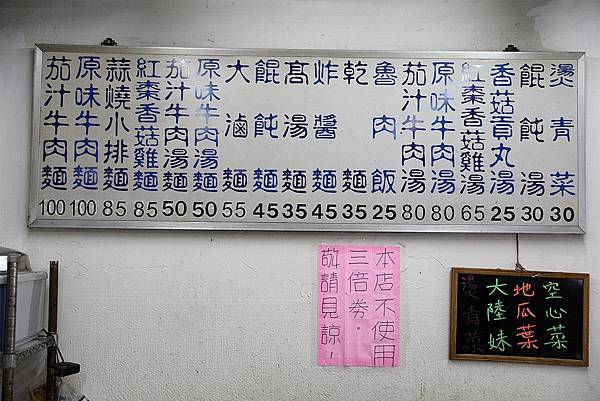 燙青菜 30
餛飩湯 30
香菇貢丸湯 25
紅棗香菇雞湯 65
原味牛肉湯 80
茄汁牛肉湯 80
魯肉飯 25
乾麵 35
炸醬麵 45
高湯麵 35
餛飩麵 45
大滷麵 55
原味牛肉湯麵 50
茄汁牛肉湯麵 50
紅棗香菇雞麵 85
蒜燒小排麵 85
原味牛肉麵 100
茄汁牛肉麵 100
本店不使用
三倍券。
敬請見諒!
空心菜
地瓜葉
大陸妹
燙青菜